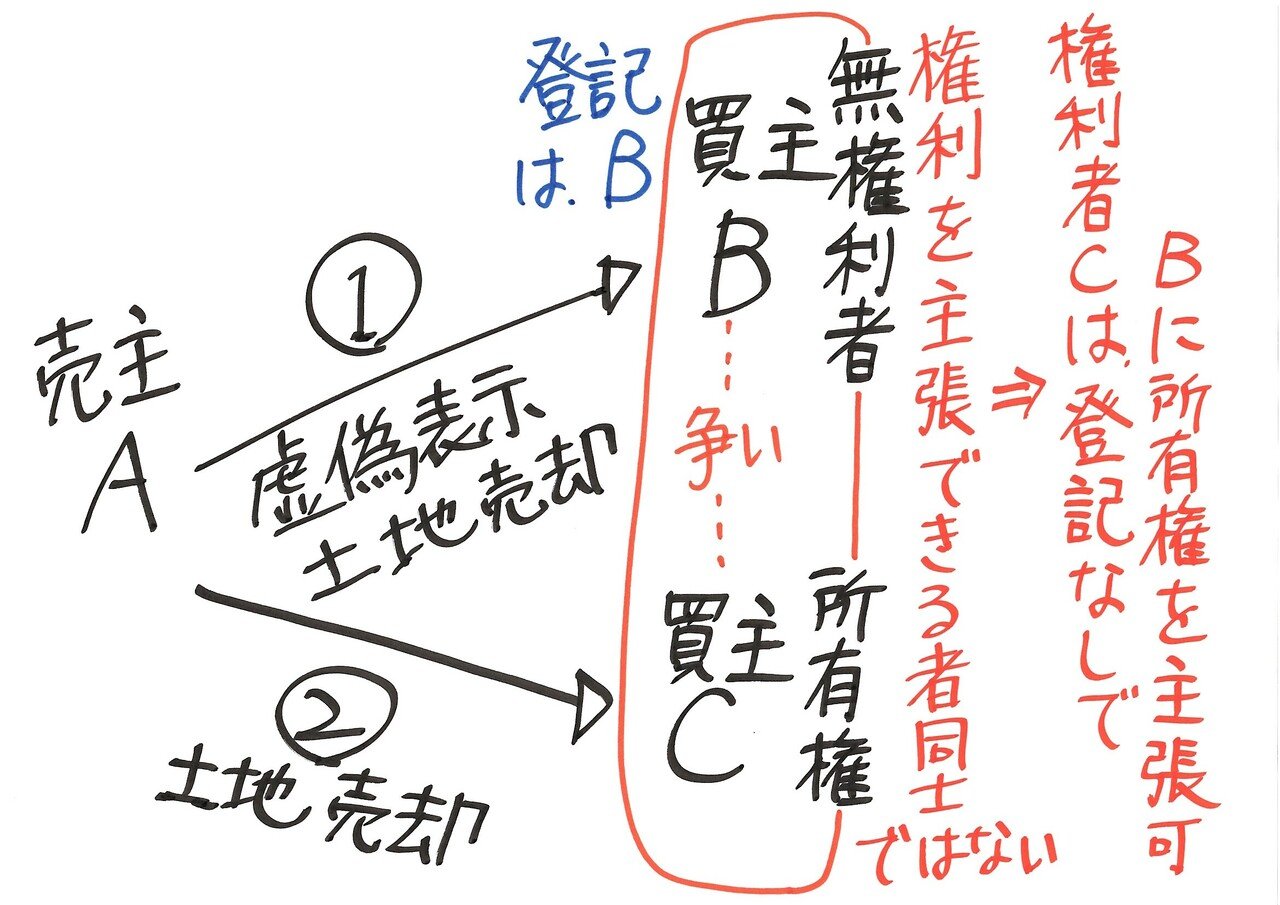 売主
A
①
虚偽表示
土地売却
②
土地売却
登記
は、B
買主
B
無権利者
争い
買主
C
所有権
権利を主張できる者同士
ではない
⇒
権利者Cは、登記なしで
Bに所有権を主張可